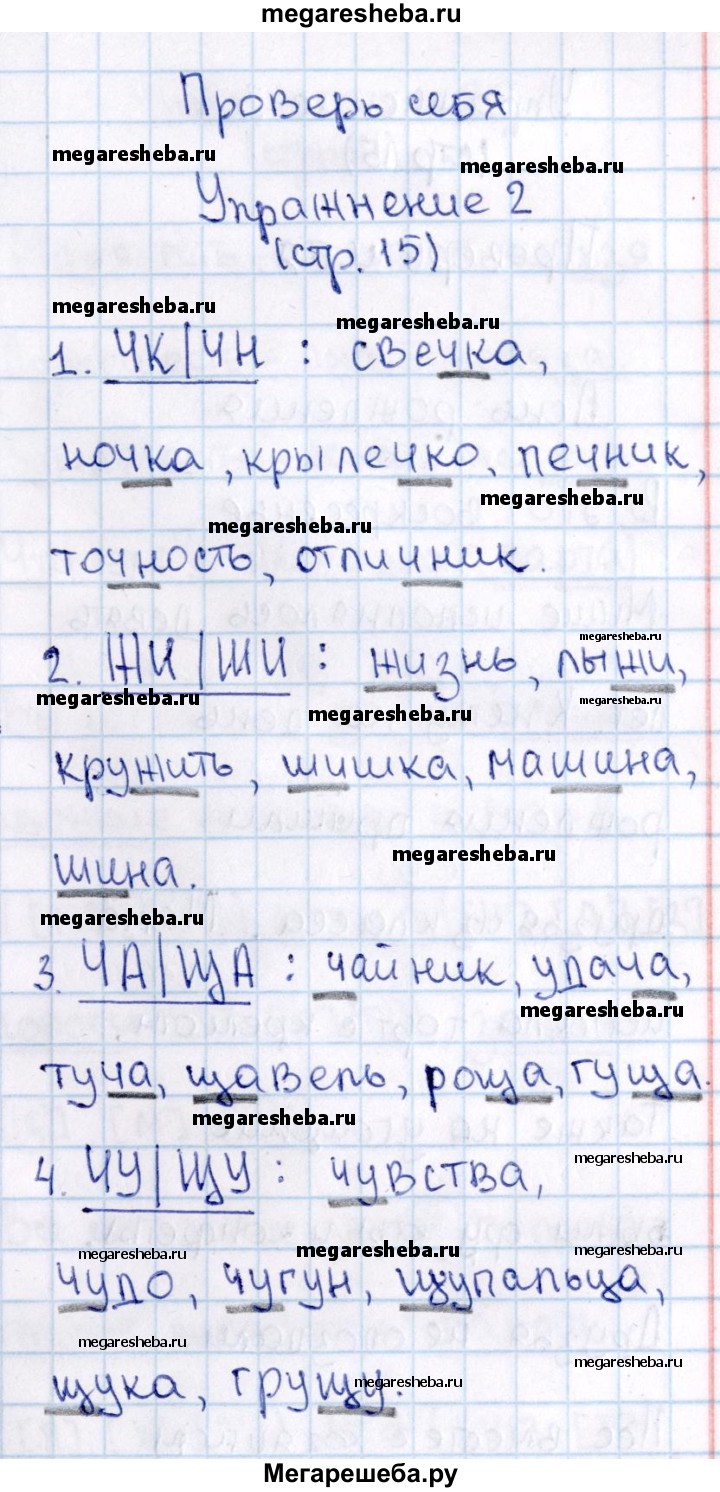 megaresheba.ru
Проверь себя
megaresheba.ru
megaresheba.ru
Упражнение 2
(стр. 15)
megaresheba.ru
megaresheba.ru
1. ЧК|ЧН : свечка,
ночка, крылечко, печник,
megaresheba.ru
megaresheba.ru
точность, отличник.
megaresheba.ru
2. ЖИ|ШИ : жизнь, лыжи,
megaresheba.ru
megaresheba.ru
megaresheba.ru
кружить, шишка, машина,
megaresheba.ru
шина.
megaresheba.ru
3. ЧА|ЩА : чайник, удача,
megaresheba.ru
туча, щавель, роща, гуща.
megaresheba.ru
megaresheba.ru
4. ЧУ|ЩУ : чувства,
megaresheba.ru
megaresheba.ru
megaresheba.ru
чудо, чугун, щупальца,
megaresheba.ru
megaresheba.ru
megaresheba.ru
щука, грущу.
Мегарешеба.ру